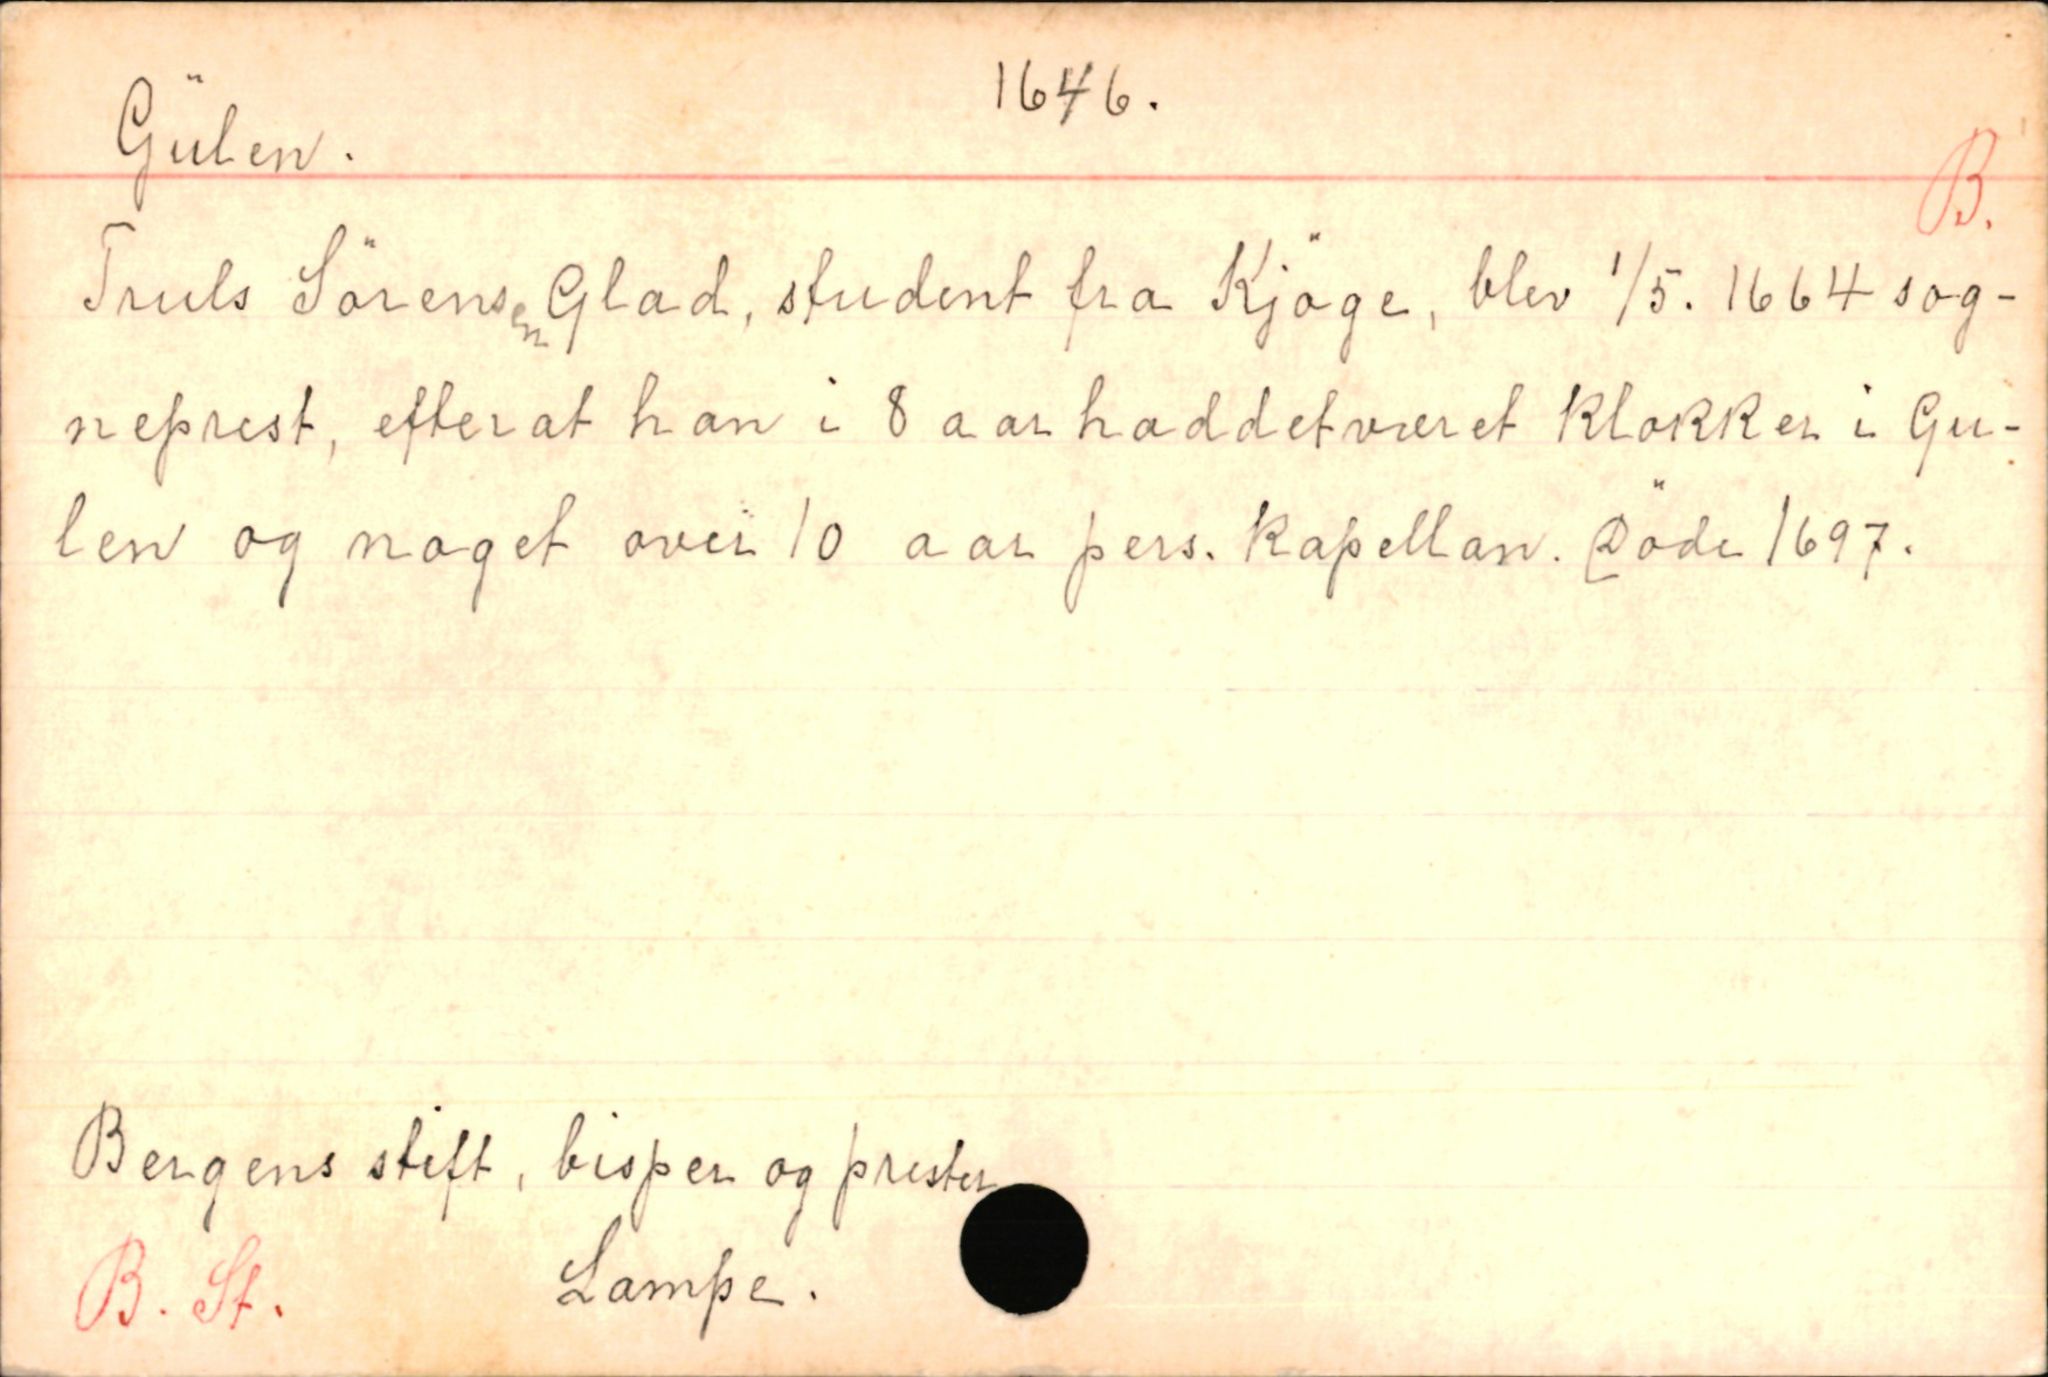 Gülen.
1646.
B.
Truls Sörensen Glad, student fra Kjöge, blev 1/5. 1664 sog-
neprest, efterat han i 8 aar haddet været klokker i Gu-
len og noget over 10 aar pers. kapellan. Döde 1697.
Bergens stift, bisper og prester
B. St.
Lampe.